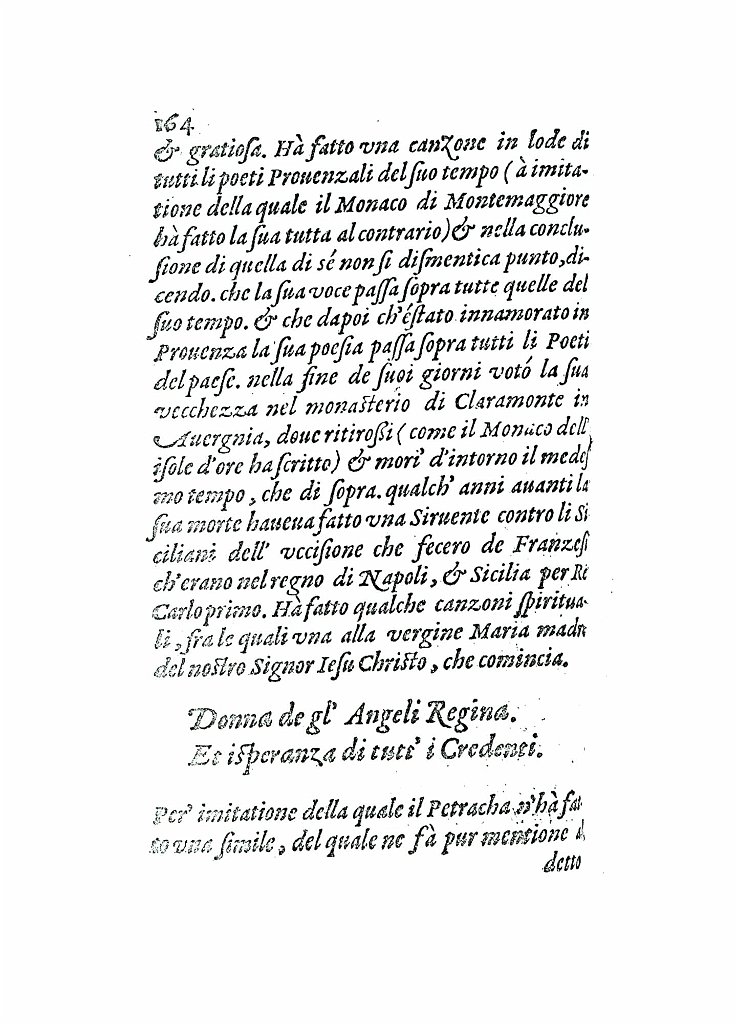 164
& gratioſa. Hà fatto vna canzone in lode di
tutti li poeti Prouenzali del ſuo tempo (à imita-
tione della quale il Monaco di Montemaggiore
hà fatto la ſua tutta al contrario) & nella conclu-
ſione di quella di sé non ſi diſmentica punto, di-
cendo. che la ſua voce paſſa ſopra tutte quelle del
ſuo tempo. & che dapoi ch'éſtato innamorato in
Prouenza la ſua poeſia paſſa ſopra tutti li Poeti
del paeſe. nella fine de ſuoi giorni votó la ſua
vecchezza nel monaſterio di Claramonte in
Auergnia, doue ritiroßi (come il Monaco dell'
iſole d'ore ha ſcritto) & mori' d'intorno il medeſ
mo tempo, che di ſopra. qualch' anni auanti la
ſua morte haueua fatto vna Siruente contro li Si
ciliani dell' vcciſione che fecero de Franzeſi
ch'erano nel regno di Napoli, & Sicilia per Re
Carlo primo. Hà fatto qualche canzoni ſpiritua-
li, fra le quali vna alla vergine Maria madre
del noſtro Signor Ieſu Chriſto, che comincia.
Donna de gl' Angeli Regina.
Et iſperanza di tutt' i Credenti.
Per' imitatione della quale il Petracha n'hà fat
to vna ſimile, del quale ne fà pur mentione
detto